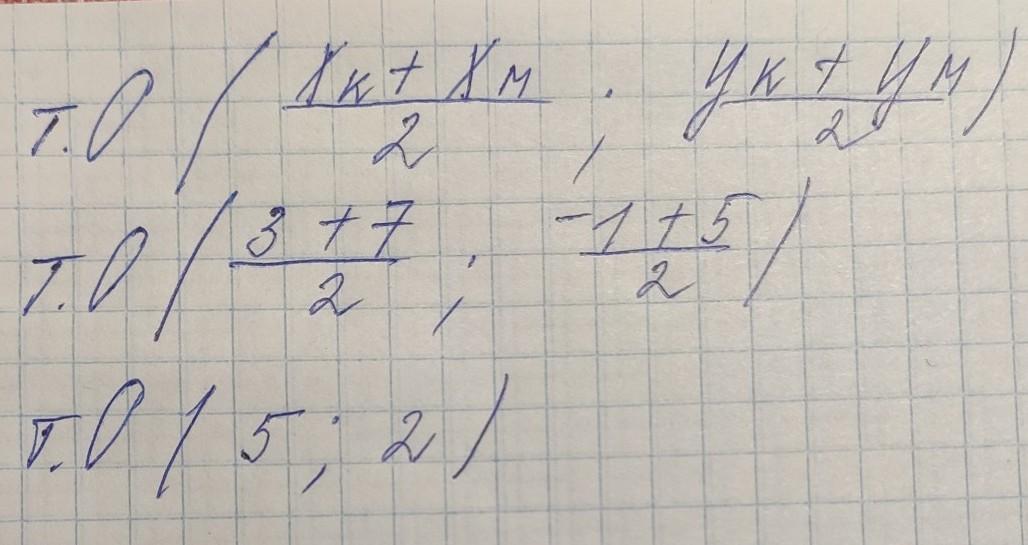 т.О ( (Xк + Xм)/2 ; (Yк + Yм)/2 )
т.О ( (3 + 7)/2 ; (-1 + 5)/2 )
т.О ( 5 ; 2 )